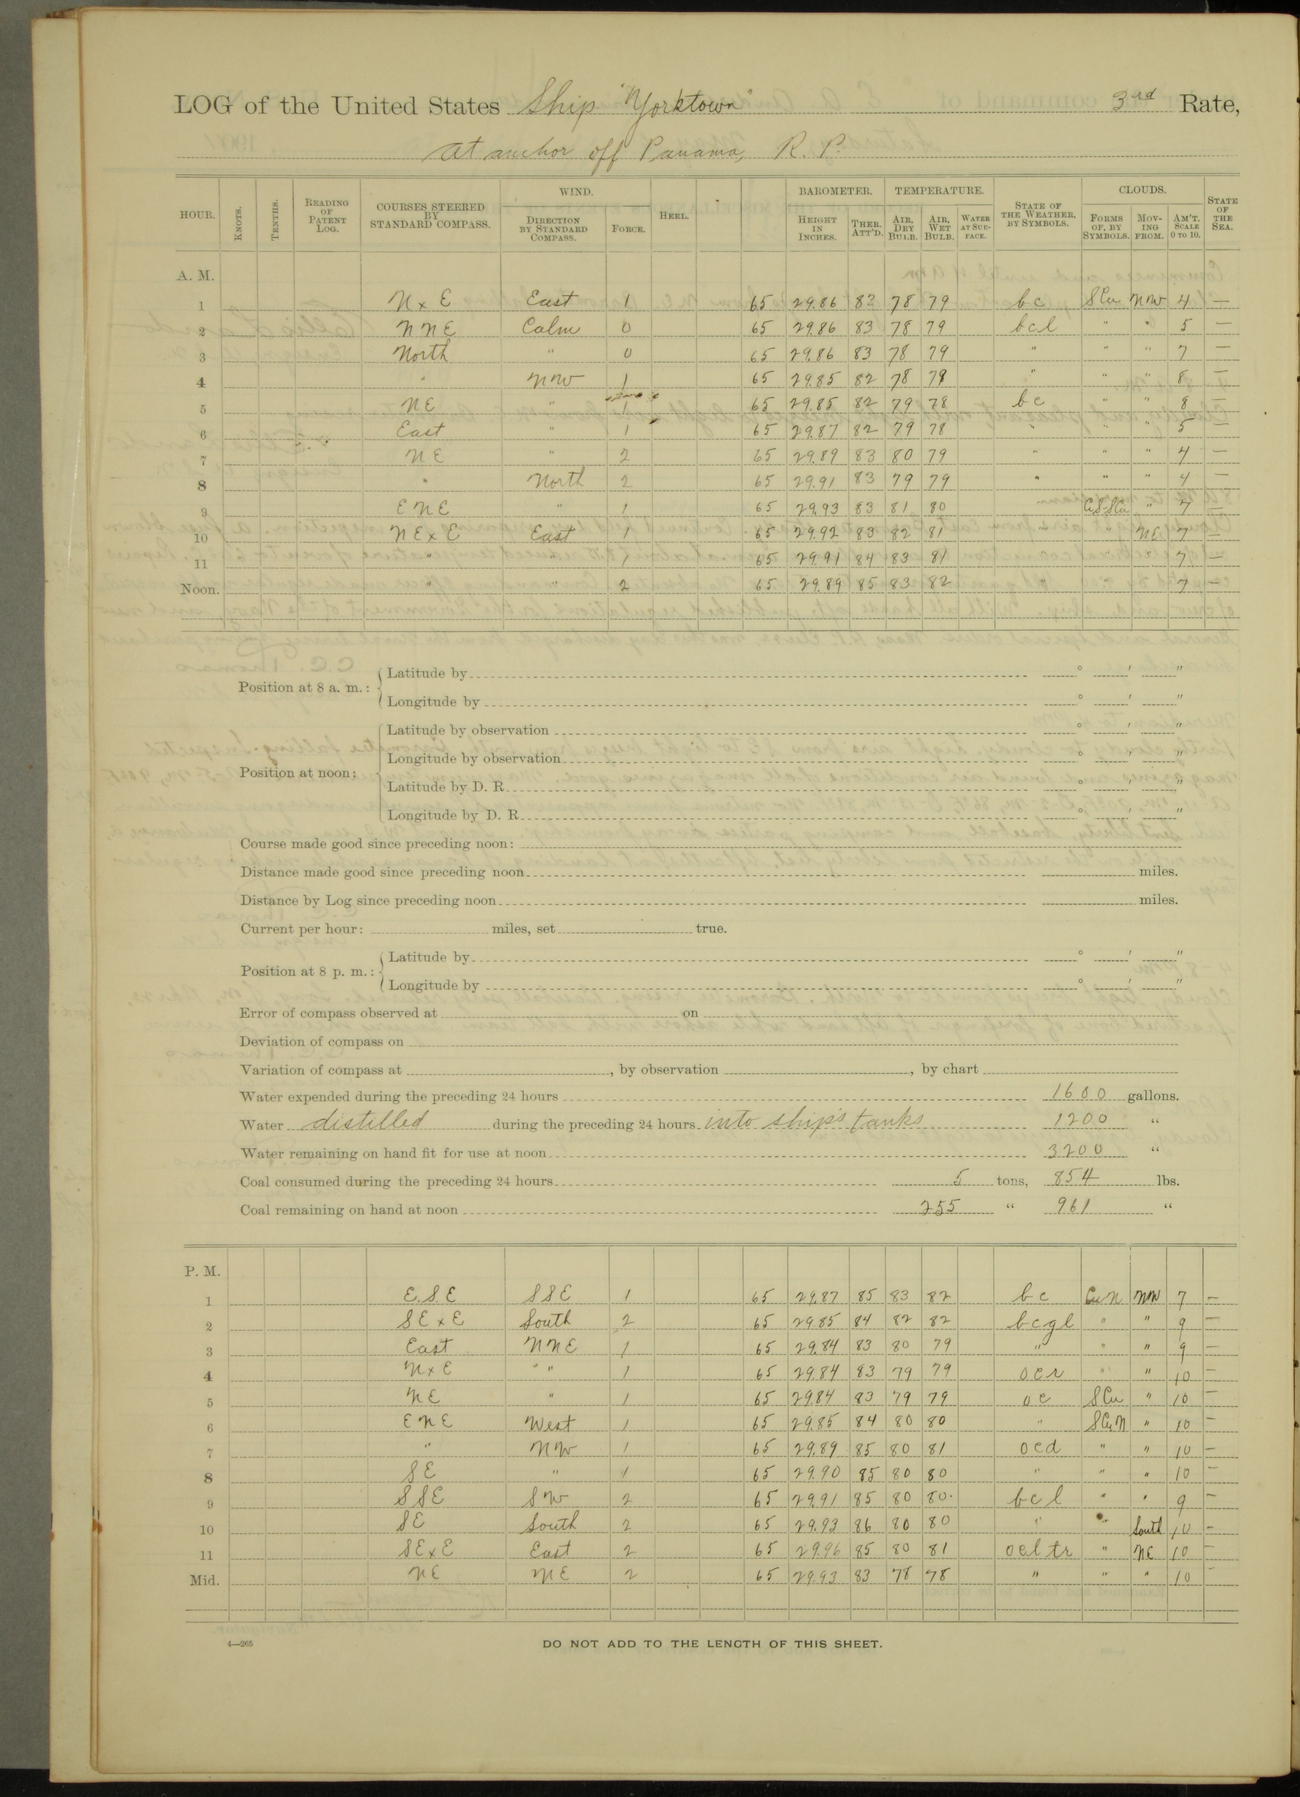 LOG of the United States Ship "Yorktown" 3rd Rate,
At anchor off Panama, R. P.
HOUR. KNOTS. TENTHS. READING OF PATENT LOG. COURSES STEERED BY STANDARD COMPASS. WIND. DIRECTION BY STANDARD COMPASS. FORCE. HEEL. BAROMETER. HEIGHT IN INCHES. THER. ATT'D. TEMPERATURE. AIR, DRY BULB. AIR, WET BULB. WATER AT SURFACE. STATE OF THE WEATHER, BY SYMBOLS. CLOUDS. FORMS OF, BY SYMBOLS. MOVING FROM. AM'T. SCALE 0 TO 10. STATE OF THE SEA.
A. M.
1 N x E East 1 65 29.86 83 78 79 bc S Cu NW 4 —
2 NNE Calm 0 65 29.86 83 78 79 bcl " " 5 —
3 North " 0 65 29.86 83 78 79 " " " 7 —
4 " NW 1 65 29.85 82 78 78 " " " 8 —
5 NE " 1 65 29.85 82 79 78 bc " " 8 —
6 East " 1 65 29.87 82 79 78 " " " 5 —
7 NE " 2 65 29.89 83 80 79 " " " 4 —
8 " North 2 65 29.91 83 79 79 " " " 4 —
9 ENE " 1 65 29.93 83 81 80 " " 7 —
10 NE x E East 1 65 29.92 83 82 81 " " NE 7 —
11 " " 1 65 29.91 84 83 81 " " " 7 —
Noon. " " 2 65 29.89 85 83 82 " " " 7 —
Position at 8 a. m.: Latitude by ° ' "
Longitude by ° ' "
Position at noon: Latitude by observation ° ' "
Longitude by observation ° ' "
Latitude by D. R. ° ' "
Longitude by D. R. ° ' "
Course made good since preceding noon:
Distance made good since preceding noon miles.
Distance by Log since preceding noon miles.
Current per hour: miles, set true.
Position at 8 p. m.: Latitude by ° ' "
Longitude by ° ' "
Error of compass observed at on
Deviation of compass on
Variation of compass at , by observation , by chart
Water expended during the preceding 24 hours 1600 gallons.
Water distilled during the preceding 24 hours into ship's tanks 1200 "
Water remaining on hand fit for use at noon 3200 "
Coal consumed during the preceding 24 hours 5 tons, 854 lbs.
Coal remaining on hand at noon 255 " 961 "
P. M.
1 E.S.E SSE 1 65 29.87 85 83 82 bc Cu N NW 7 —
2 SE x E South 2 65 29.85 84 82 82 bcgl " " 9 —
3 East NNE 1 65 29.84 83 80 79 " " " 9 —
4 N x E " " 1 65 29.84 83 79 79 ocr " " 10 —
5 NE " 1 65 29.84 83 79 79 oc S Cu " 10 —
6 ENE West 1 65 29.85 84 80 80 " S Cu N " 10 —
7 " NW 1 65 29.89 85 80 81 ocd " " 10 —
8 SE " 1 65 29.90 85 80 80 " " " 10 —
9 SSE SW 2 65 29.91 85 80 80 bcl " " 9 —
10 SE South 2 65 29.93 86 80 80 " " South 10 —
11 SE x E East 2 65 29.96 85 80 81 ocltr " NE 10 —
Mid. NE NE 2 65 29.93 83 78 78 " " " 10 —
4—265
DO NOT ADD TO THE LENGTH OF THIS SHEET.